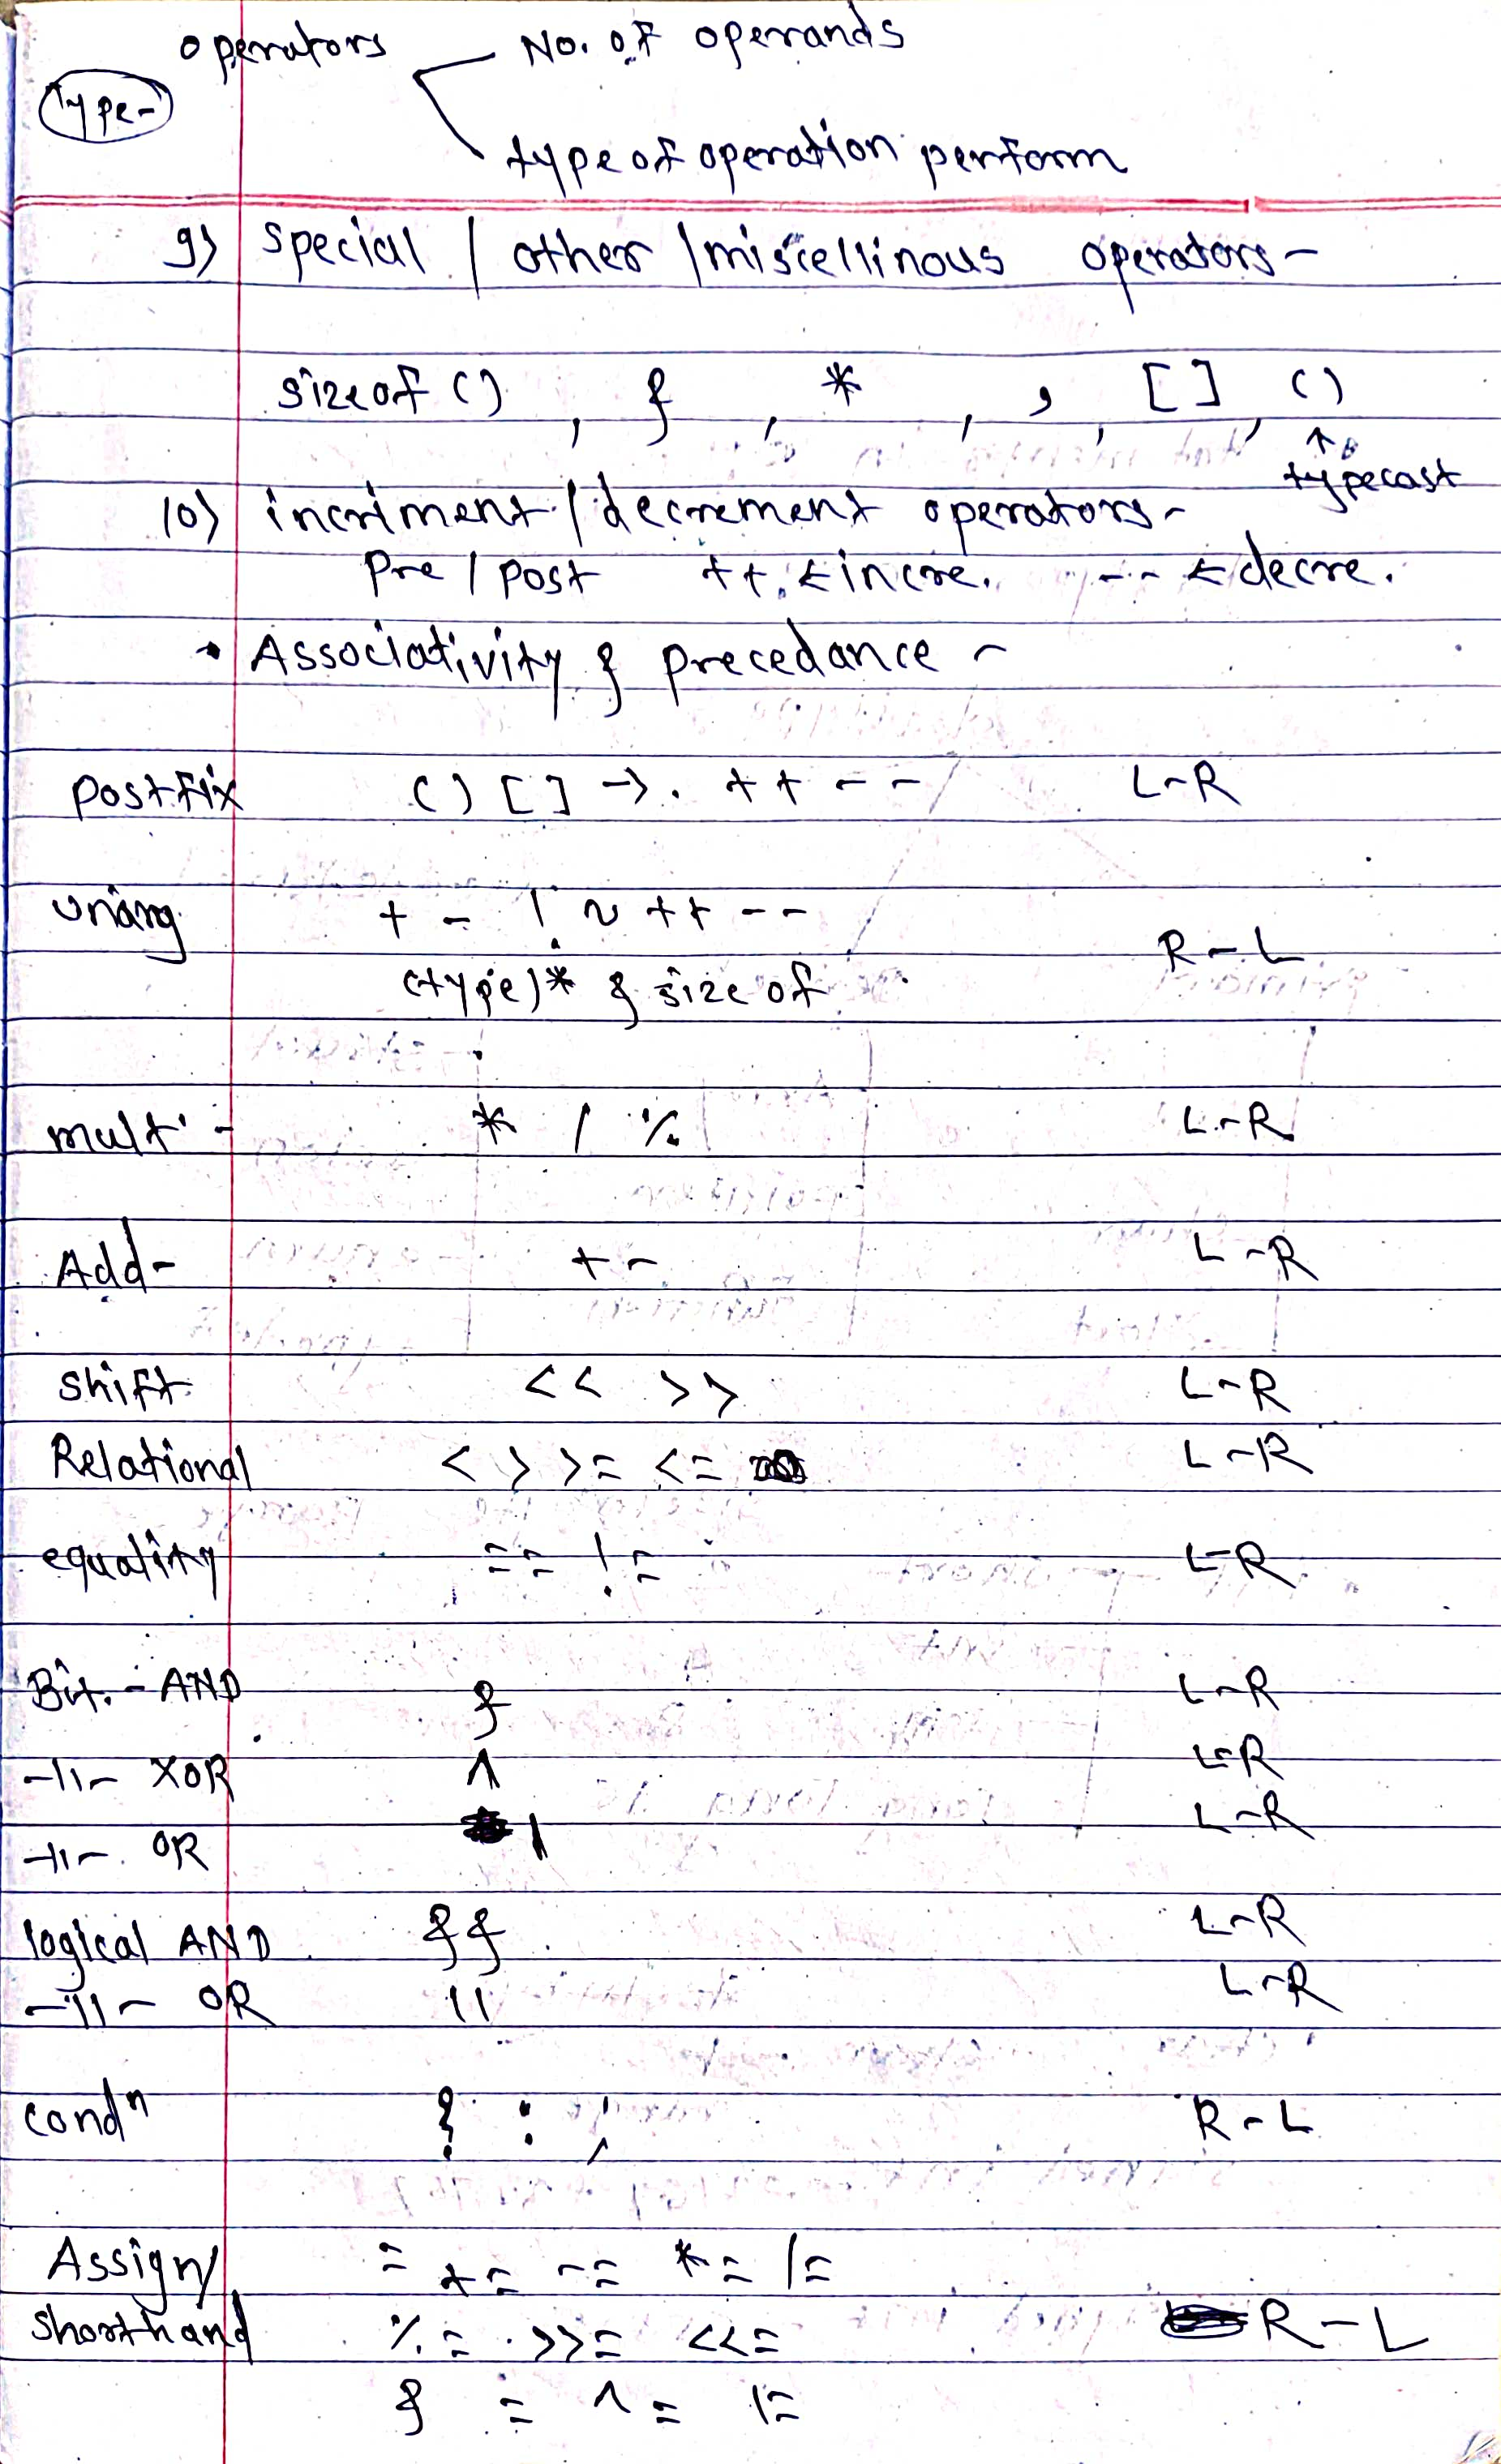 operators No. of operands
Type-
type of operation perform
9) special / other / miscellinous operators-
sizeof (), &, *, , , [ ], ()
↑
typecast
10) incriment / decrement operators-
Pre / post ++ ← incre. -- ← decre.
• Associativity & precedance -
postfix () [ ] → . ++ -- L-R
unary + - ! ~ ++ --
R-L
(type)* & size of
mult - * / % L-R
Add- + - L-R
shift << >> L-R
Relational < > >= <= L-R
equality == != L-R
Bit. - AND & L-R
-11- XOR ^ L-R
-11- OR | L-R
logical AND && L-R
-11- OR || L-R
condⁿ ? : ; R-L
Assign/ = += -= *= /=
shorthand %= >>= <<= R-L
& = ^= |=